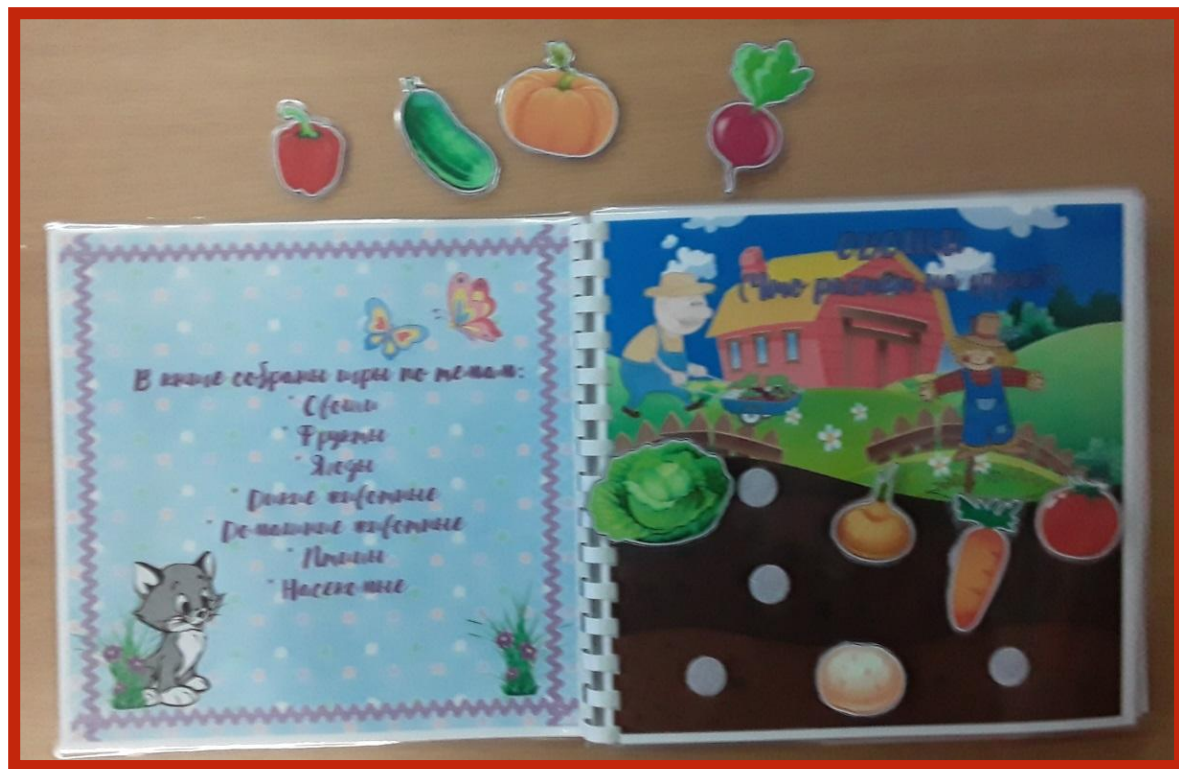 В книге собраны игры по темам:
* Овощи
* Фрукты
* Ягоды
* Дикие животные
* Домашние животные
* Птицы
* Насекомые
ОВОЩИ
(Что растёт на